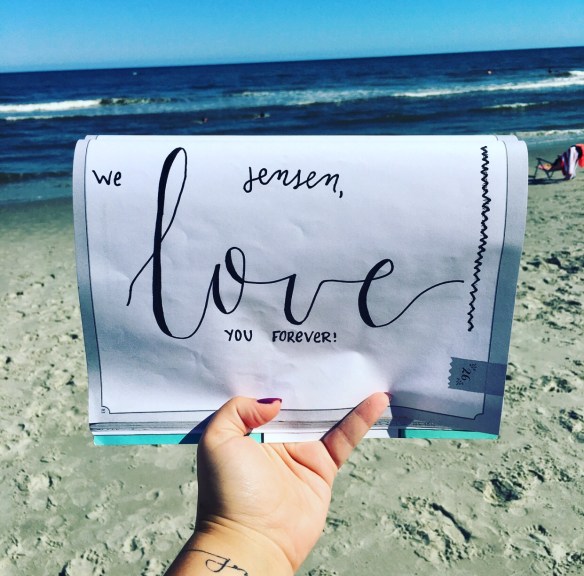 we Jensen,
love
YOU FOREVER!